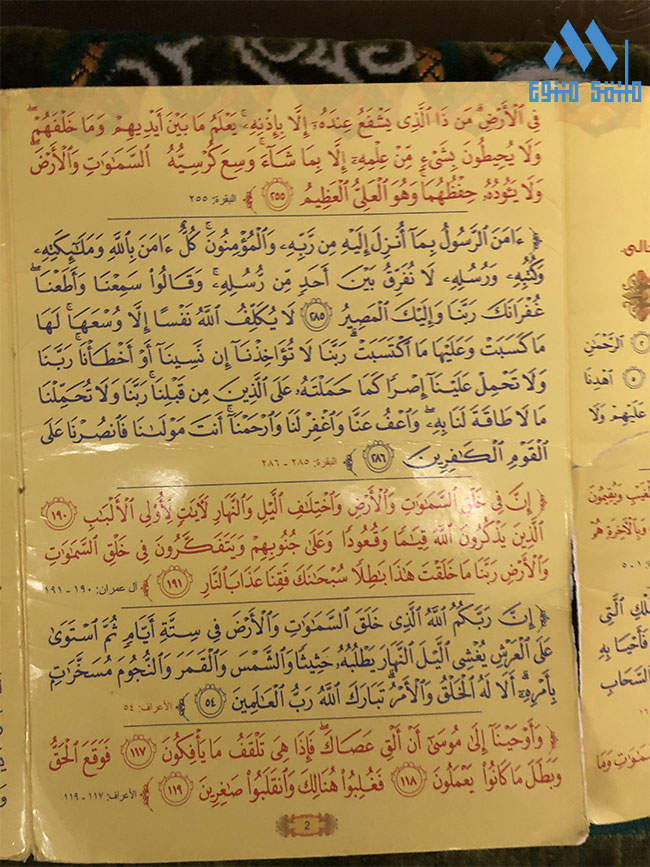 ماسة سبوع
فِي ٱلْأَرْضِ ۗ مَن ذَا ٱلَّذِى يَشْفَعُ عِندَهُۥٓ إِلَّا بِإِذْنِهِۦ ۚ يَعْلَمُ مَا بَيْنَ أَيْدِيهِمْ وَمَا خَلْفَهُمْ ۖ
وَلَا يُحِيطُونَ بِشَىْءٍ مِّنْ عِلْمِهِۦٓ إِلَّا بِمَا شَآءَ ۚ وَسِعَ كُرْسِيُّهُ ٱلسَّمَٰوَٰتِ وَٱلْأَرْضَ ۖ
وَلَا يَـُٔودُهُۥ حِفْظُهُمَا ۚ وَهُوَ ٱلْعَلِىُّ ٱلْعَظِيمُ ٢٥٥ ﴾ البقرة: ٢٥٥
﴿ ءَامَنَ ٱلرَّسُولُ بِمَآ أُنزِلَ إِلَيْهِ مِن رَّبِّهِۦ وَٱلْمُؤْمِنُونَ ۚ كُلٌّ ءَامَنَ بِٱللَّهِ وَمَلَٰٓئِكَتِهِۦ
وَكُتُبِهِۦ وَرُسُلِهِۦ لَا نُفَرِّقُ بَيْنَ أَحَدٍ مِّن رُّسُلِهِۦ ۚ وَقَالُوا۟ سَمِعْنَا وَأَطَعْنَا ۖ
غُفْرَانَكَ رَبَّنَا وَإِلَيْكَ ٱلْمَصِيرُ ٢٨٥ لَا يُكَلِّفُ ٱللَّهُ نَفْسًا إِلَّا وُسْعَهَا ۚ لَهَا
مَا كَسَبَتْ وَعَلَيْهَا مَا ٱكْتَسَبَتْ ۗ رَبَّنَا لَا تُؤَاخِذْنَآ إِن نَّسِينَآ أَوْ أَخْطَأْنَا ۚ رَبَّنَا
وَلَا تَحْمِلْ عَلَيْنَآ إِصْرًا كَمَا حَمَلْتَهُۥ عَلَى ٱلَّذِينَ مِن قَبْلِنَا ۚ رَبَّنَا وَلَا تُحَمِّلْنَا
مَا لَا طَاقَةَ لَنَا بِهِۦ ۖ وَٱعْفُ عَنَّا وَٱغْفِرْ لَنَا وَٱرْحَمْنَآ ۚ أَنتَ مَوْلَىٰنَا فَٱنصُرْنَا عَلَى
ٱلْقَوْمِ ٱلْكَٰفِرِينَ ٢٨٦ ﴾ البقرة: ٢٨٥ - ٢٨٦
﴿ إِنَّ فِى خَلْقِ ٱلسَّمَٰوَٰتِ وَٱلْأَرْضِ وَٱخْتِلَٰفِ ٱلَّيْلِ وَٱلنَّهَارِ لَءَايَٰتٍ لِّأُو۟لِى ٱلْأَلْبَٰبِ ١٩٠
ٱلَّذِينَ يَذْكُرُونَ ٱللَّهَ قِيَٰمًا وَقُعُودًا وَعَلَىٰ جُنُوبِهِمْ وَيَتَفَكَّرُونَ فِى خَلْقِ ٱلسَّمَٰوَٰتِ
وَٱلْأَرْضِ رَبَّنَا مَا خَلَقْتَ هَٰذَا بَٰطِلًا سُبْحَٰنَكَ فَقِنَا عَذَابَ ٱلنَّارِ ١٩١ ﴾ آل عمران: ١٩٠ - ١٩١
﴿ إِنَّ رَبَّكُمُ ٱللَّهُ ٱلَّذِى خَلَقَ ٱلسَّمَٰوَٰتِ وَٱلْأَرْضَ فِى سِتَّةِ أَيَّامٍ ثُمَّ ٱسْتَوَىٰ
عَلَى ٱلْعَرْشِ يُغْشِى ٱلَّيْلَ ٱلنَّهَارَ يَطْلُبُهُۥ حَثِيثًا وَٱلشَّمْسَ وَٱلْقَمَرَ وَٱلنُّجُومَ مُسَخَّرَٰتٍۭ
بِأَمْرِهِۦٓ ۗ أَلَا لَهُ ٱلْخَلْقُ وَٱلْأَمْرُ ۗ تَبَارَكَ ٱللَّهُ رَبُّ ٱلْعَٰلَمِينَ ٥٤ ﴾ الأعراف: ٥٤
﴿ وَأَوْحَيْنَآ إِلَىٰ مُوسَىٰٓ أَنْ أَلْقِ عَصَاكَ ۖ فَإِذَا هِىَ تَلْقَفُ مَا يَأْفِكُونَ ١١٧ فَوَقَعَ ٱلْحَقُّ
وَبَطَلَ مَا كَانُوا۟ يَعْمَلُونَ ١١٨ فَغُلِبُوا۟ هُنَالِكَ وَٱنقَلَبُوا۟ صَٰغِرِينَ ١١٩ ﴾ الأعراف: ١١٧ - ١١٩
2
ٱلرَّحْمَٰنِ
ٱهْدِنَا
عَلَيْهِمْ وَلَا
وَيُقِيمُونَ
وَبِٱلْءَاخِرَةِ هُمْ
ٱلَّتِى
فَأَحْيَا بِهِ
ٱلسَّحَابِ